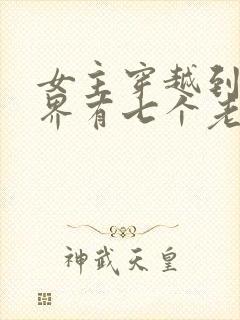 女主穿越到
界有七个老
神武天皇